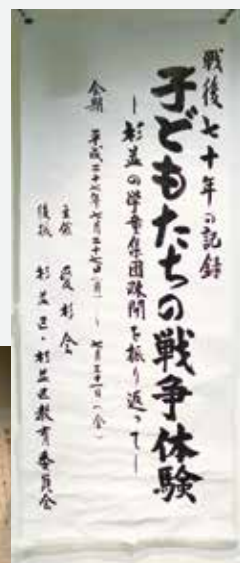 戦後七十年の記録
子どもたちの戦争体験
―杉並の学童集団疎開を振り返って―
会期 平成二十七年七月二十七日(月)~七月三十一日(金)
主催 愛杉会
後援 杉並区・杉並区教育委員会